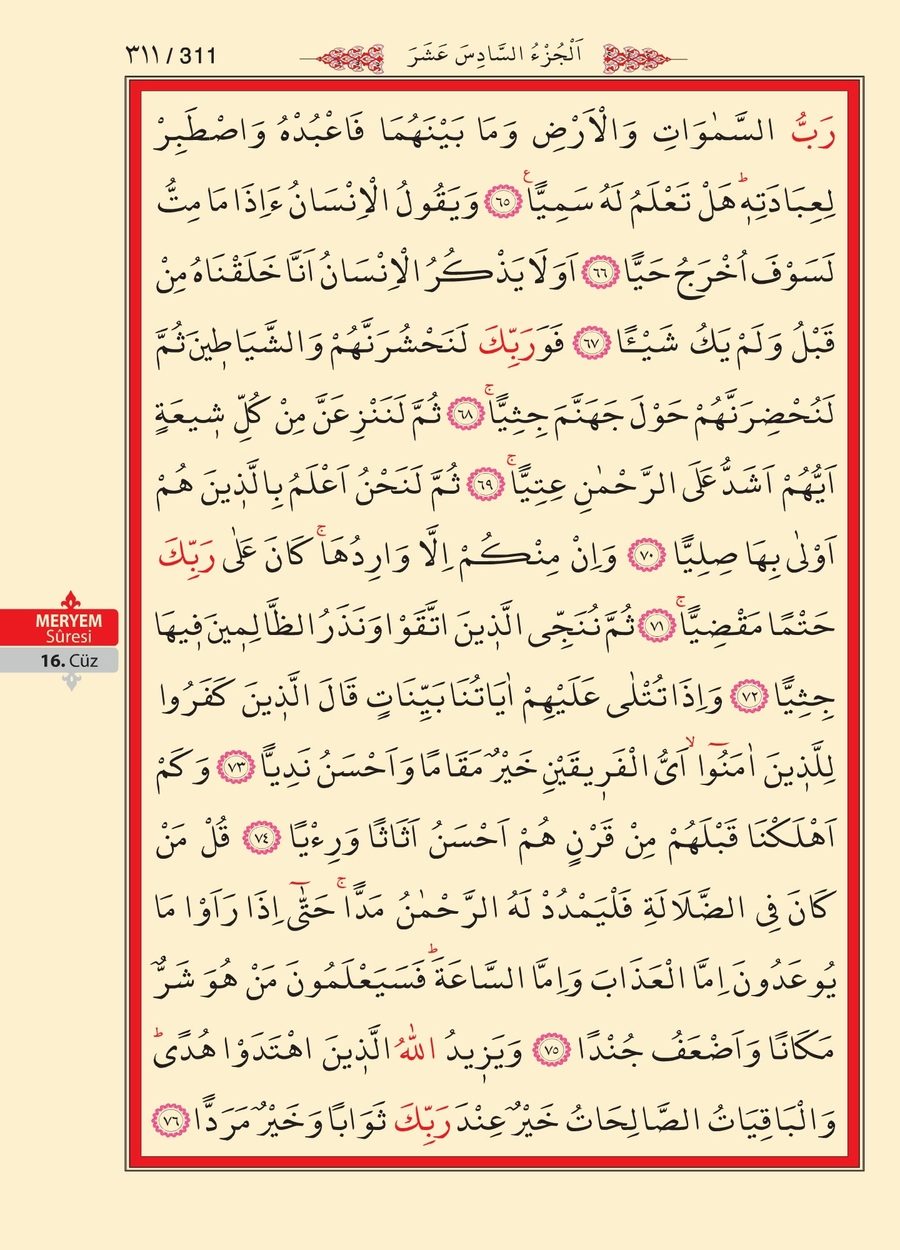 ٣١١ / 311
اَلْجُزْءُ السَّادِسَ عَشَرَ
رَبُّ السَّمٰوَاتِ وَالْاَرْضِ وَمَا بَيْنَهُمَا فَاعْبُدْهُ وَاصْطَبِرْ
لِعِبَادَتِه۪ۜ هَلْ تَعْلَمُ لَهُ سَمِيًّا۟ ﴿٦٥﴾ وَيَقُولُ الْاِنْسَانُ ءَاِذَا مَا مِتُّ
لَسَوْفَ اُخْرَجُ حَيًّا ﴿٦٦﴾ اَوَلَا يَذْكُرُ الْاِنْسَانُ اَنَّا خَلَقْنَاهُ مِنْ
قَبْلُ وَلَمْ يَكُ شَيْـًٔا ﴿٦٧﴾ فَوَرَبِّكَ لَنَحْشُرَنَّهُمْ وَالشَّيَاط۪ينَ ثُمَّ
لَنُحْضِرَنَّهُمْ حَوْلَ جَهَنَّمَ جِثِيًّاۚ ﴿٦٨﴾ ثُمَّ لَنَنْزِعَنَّ مِنْ كُلِّ ش۪يعَةٍ
اَيُّهُمْ اَشَدُّ عَلَى الرَّحْمٰنِ عِتِيًّاۚ ﴿٦٩﴾ ثُمَّ لَنَحْنُ اَعْلَمُ بِالَّذ۪ينَ هُمْ
اَوْلٰى بِهَا صِلِيًّا ﴿٧٠﴾ وَاِنْ مِنْكُمْ اِلَّا وَارِدُهَاۚ كَانَ عَلٰى رَبِّكَ
حَتْمًا مَقْضِيًّاۚ ﴿٧١﴾ ثُمَّ نُنَجِّي الَّذ۪ينَ اتَّقَوْا وَنَذَرُ الظَّالِم۪ينَ ف۪يهَا
جِثِيًّا ﴿٧٢﴾ وَاِذَا تُتْلٰى عَلَيْهِمْ اٰيَاتُنَا بَيِّنَاتٍ قَالَ الَّذ۪ينَ كَفَرُوا
لِلَّذ۪ينَ اٰمَنُٓواۙ اَيُّ الْفَر۪يقَيْنِ خَيْرٌ مَقَامًا وَاَحْسَنُ نَدِيًّا ﴿٧٣﴾ وَكَمْ
اَهْلَكْنَا قَبْلَهُمْ مِنْ قَرْنٍ هُمْ اَحْسَنُ اَثَاثًا وَرِءْيًا ﴿٧٤﴾ قُلْ مَنْ
كَانَ فِي الضَّلَالَةِ فَلْيَمْدُدْ لَهُ الرَّحْمٰنُ مَدًّاۚ حَتّٰٓى اِذَا رَاَوْا مَا
يُوعَدُونَ اِمَّا الْعَذَابَ وَاِمَّا السَّاعَةَۜ فَسَيَعْلَمُونَ مَنْ هُوَ شَرٌّ
مَكَانًا وَاَضْعَفُ جُنْدًا ﴿٧٥﴾ وَيَز۪يدُ اللّٰهُ الَّذ۪ينَ اهْتَدَوْا هُدًىۜ
وَالْبَاقِيَاتُ الصَّالِحَاتُ خَيْرٌ عِنْدَ رَبِّكَ ثَوَابًا وَخَيْرٌ مَرَدًّا ﴿٧٦﴾
MERYEM
Sûresi
16. Cüz